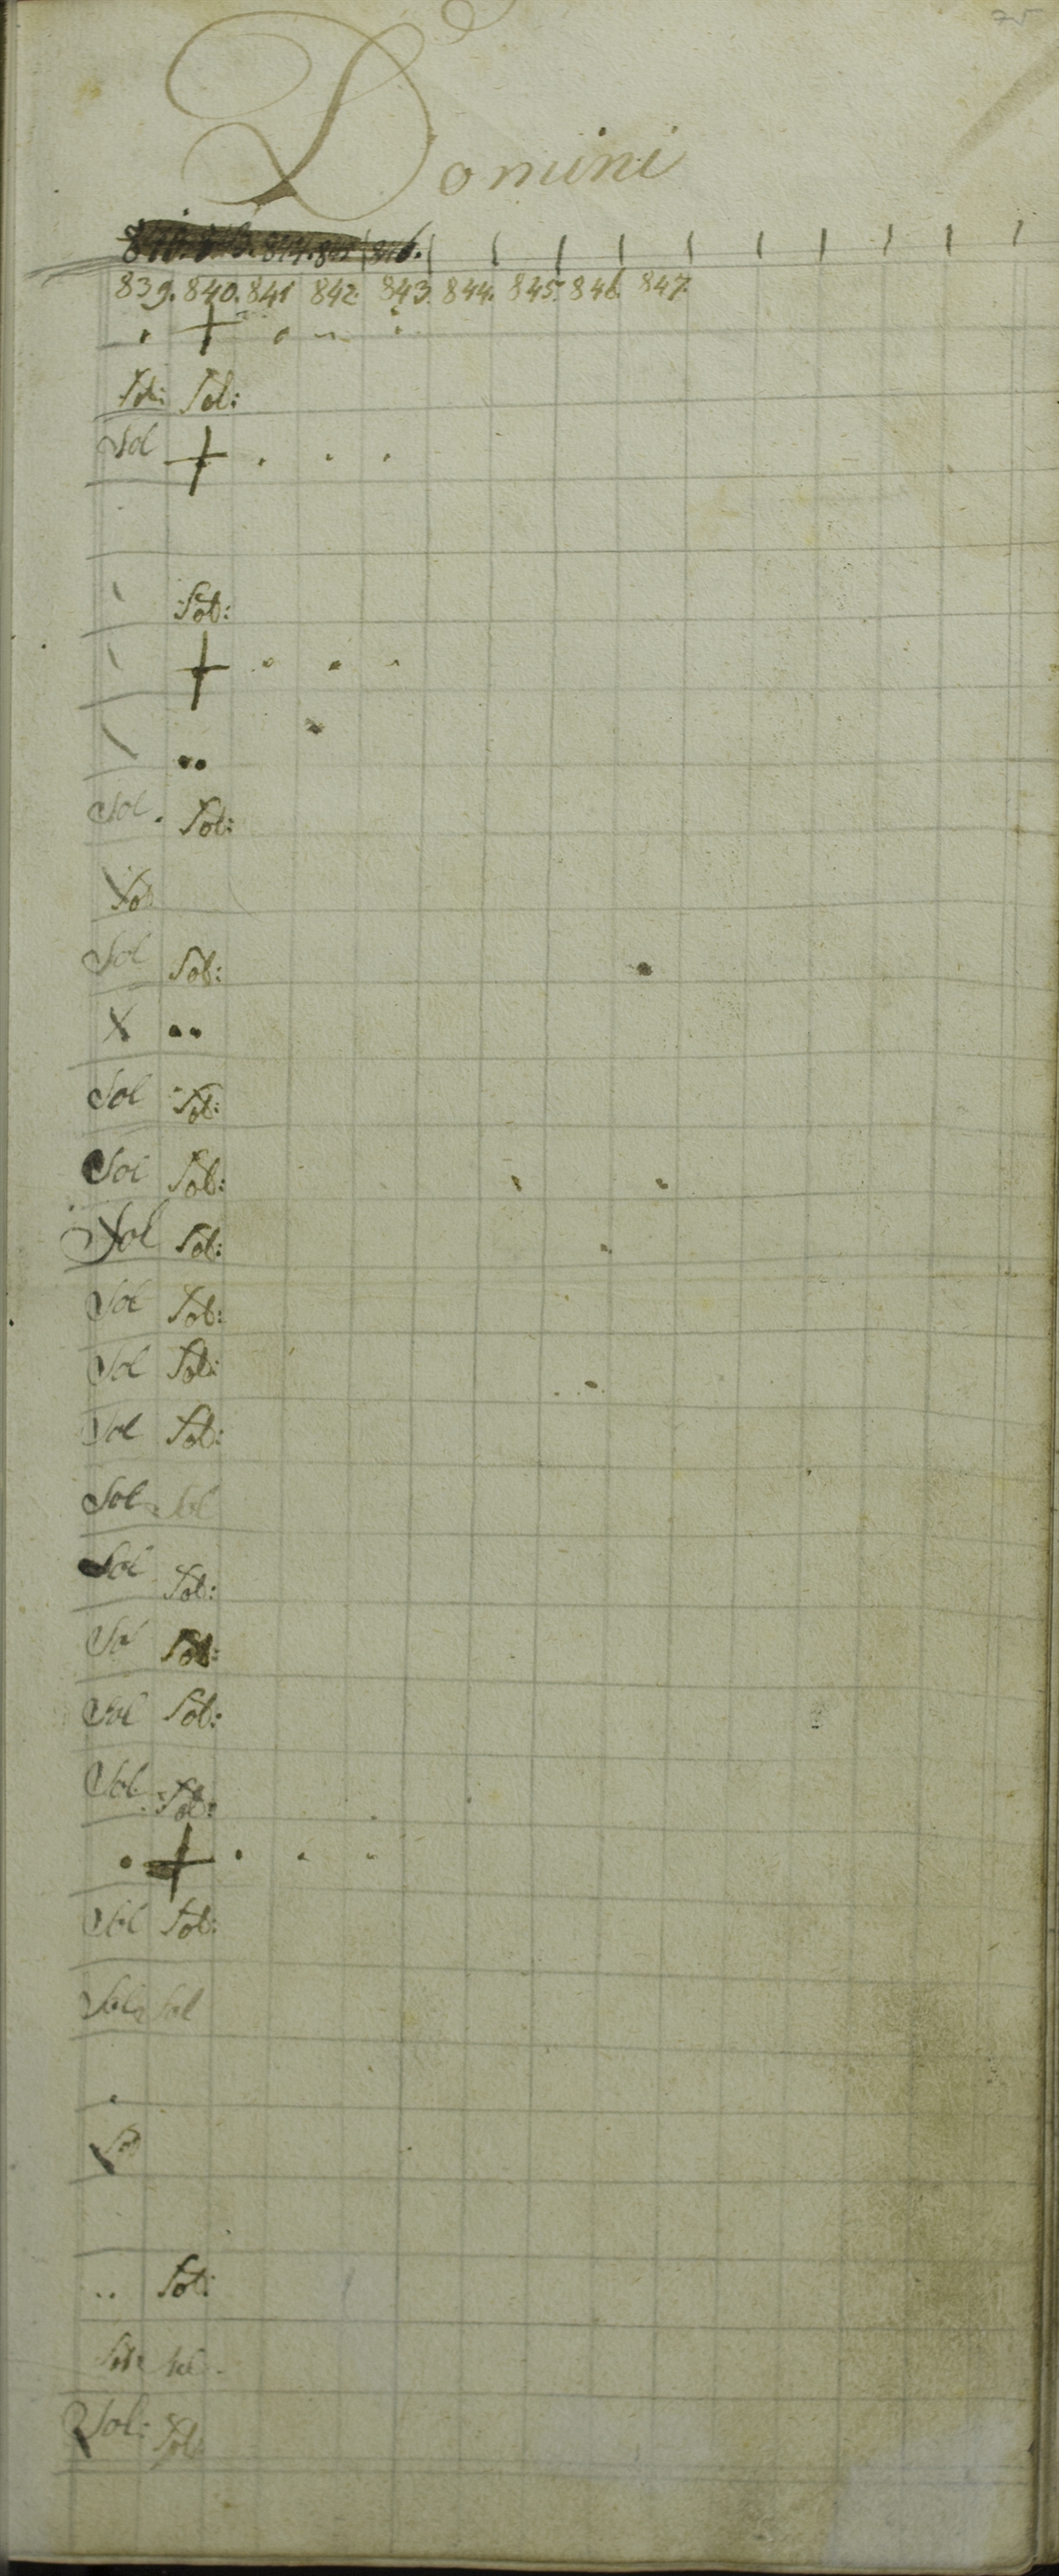 75
Domini
814. 846.
839. 840. 841 842. 843. 844. 845. 846. 847.
. + . . .
Sol: Sol:
Sol + . . .
Sol:
+ . . .
..
Sol. Sol:
Sol
Sol Sol:
X ..
Sol Sol:
Sol Sol:
Sol Sol:
Sol Sol:
Sol Sol:
Sol Sol:
Sol Sol
Sol Sol:
Sol Sol:
Sol Sol:
Sol Sol:
. + . . .
Sol Sol:
Sol Sol
.
Sol
.. Sol:
Sol: Sol
Sol: Sol: